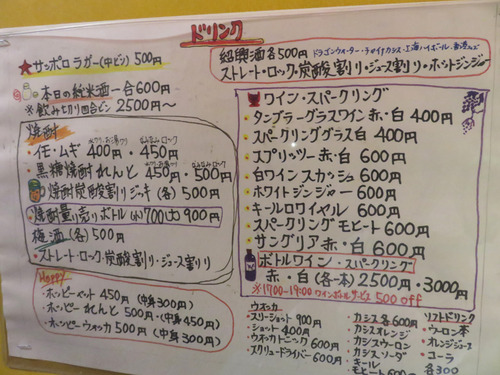 ドリンク
★サッポロラガー(中ビン) 500円
本日の純米酒一合600円
※飲み切り四合ビン 2500円〜
焼酎
・イモ・ムギ 400円・450円
・黒糖焼酎れんと 450円・500円
焼酎炭酸割りジョッキ(各) 500円
・焼酎量り売りボトル(小)700(大)900円
梅酒(各) 500円
・ストレート・ロック・炭酸割り・ジュース割り
Hoppy
・ホッピーセット 450円(中身300円)
・ホッピーれんと 500円・(中身450円)
・ホッピーウオッカ 500円(中身300円)
紹興酒各500円
ストレート・ロック・炭酸割り・ジュース割り・ホットジンジャー
ワイン・スパークリング
・タンブラーグラスワイン赤・白 400円
・スパークリンググラス白 400円
・スプリッツァー赤・白 600円
・白ワインスカッシュ 600円
・ホワイトジンジャー 600円
・キールロワイヤル 600円
・スパークリングモヒート 600円
・サングリア赤・白 600円
ボトルワイン・スパークリング
・赤・白(各一本)2500円・3000円
※17:00-19:00 ワインボトルサービス 500 off
ウオッカ
・スリーショット 900円
・ショット 400円
・ウオッカトニック 600円
・スクリュードライバー 600円
・カシス各600円
・カシスオレンジ
・カシスウーロン
・カシスソーダ
・キール
モヒート 600円
ソフトドリンク
・ウーロン茶
・オレンジジュース
・コーラ
各300